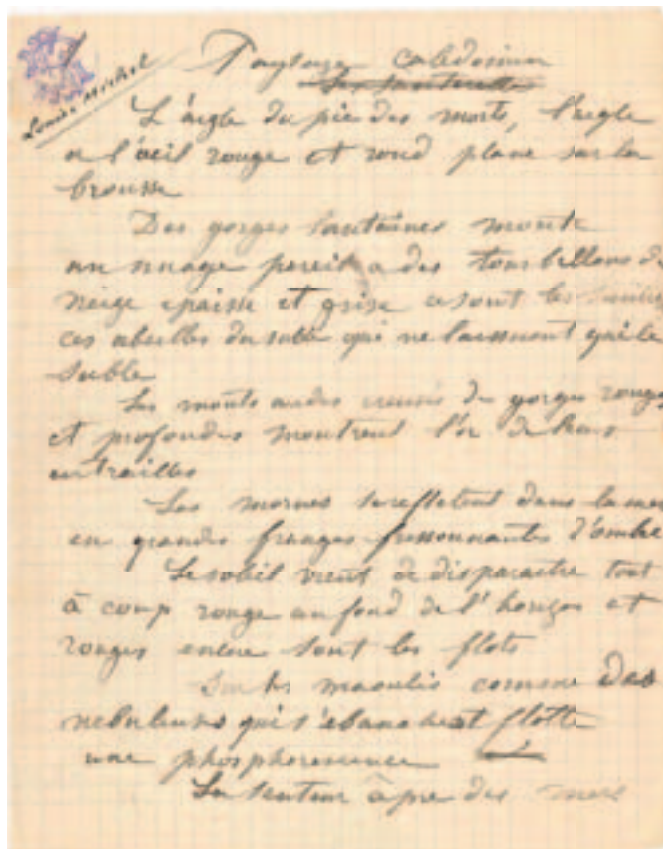 Louise Michel
Paysage calédonien
Les sauterelles
L'aigle du pic des morts, l'aigle
a l'œil rouge et rond plane sur la
brousse
Des gorges lointaines monte
un nuage pareil a des tourbillons de
neige epaisse et grise ce sont les
ces abeilles du sable qui ne laissent que le
sable
Les monts arides creusés de gorges rouges
et profondes montrent l'or de leurs
entrailles
Les mornes se refletent dans la mer
en grandes franges frissonnantes d'ombre
Le soleil vient de disparaitre tout
à coup rouge au fond de l'horizon et
rouges encore sont les flots
Sur les comme des
nebuleuses qui s'ebauchent flotte
une phosphorescence
La senteur âpre des mers